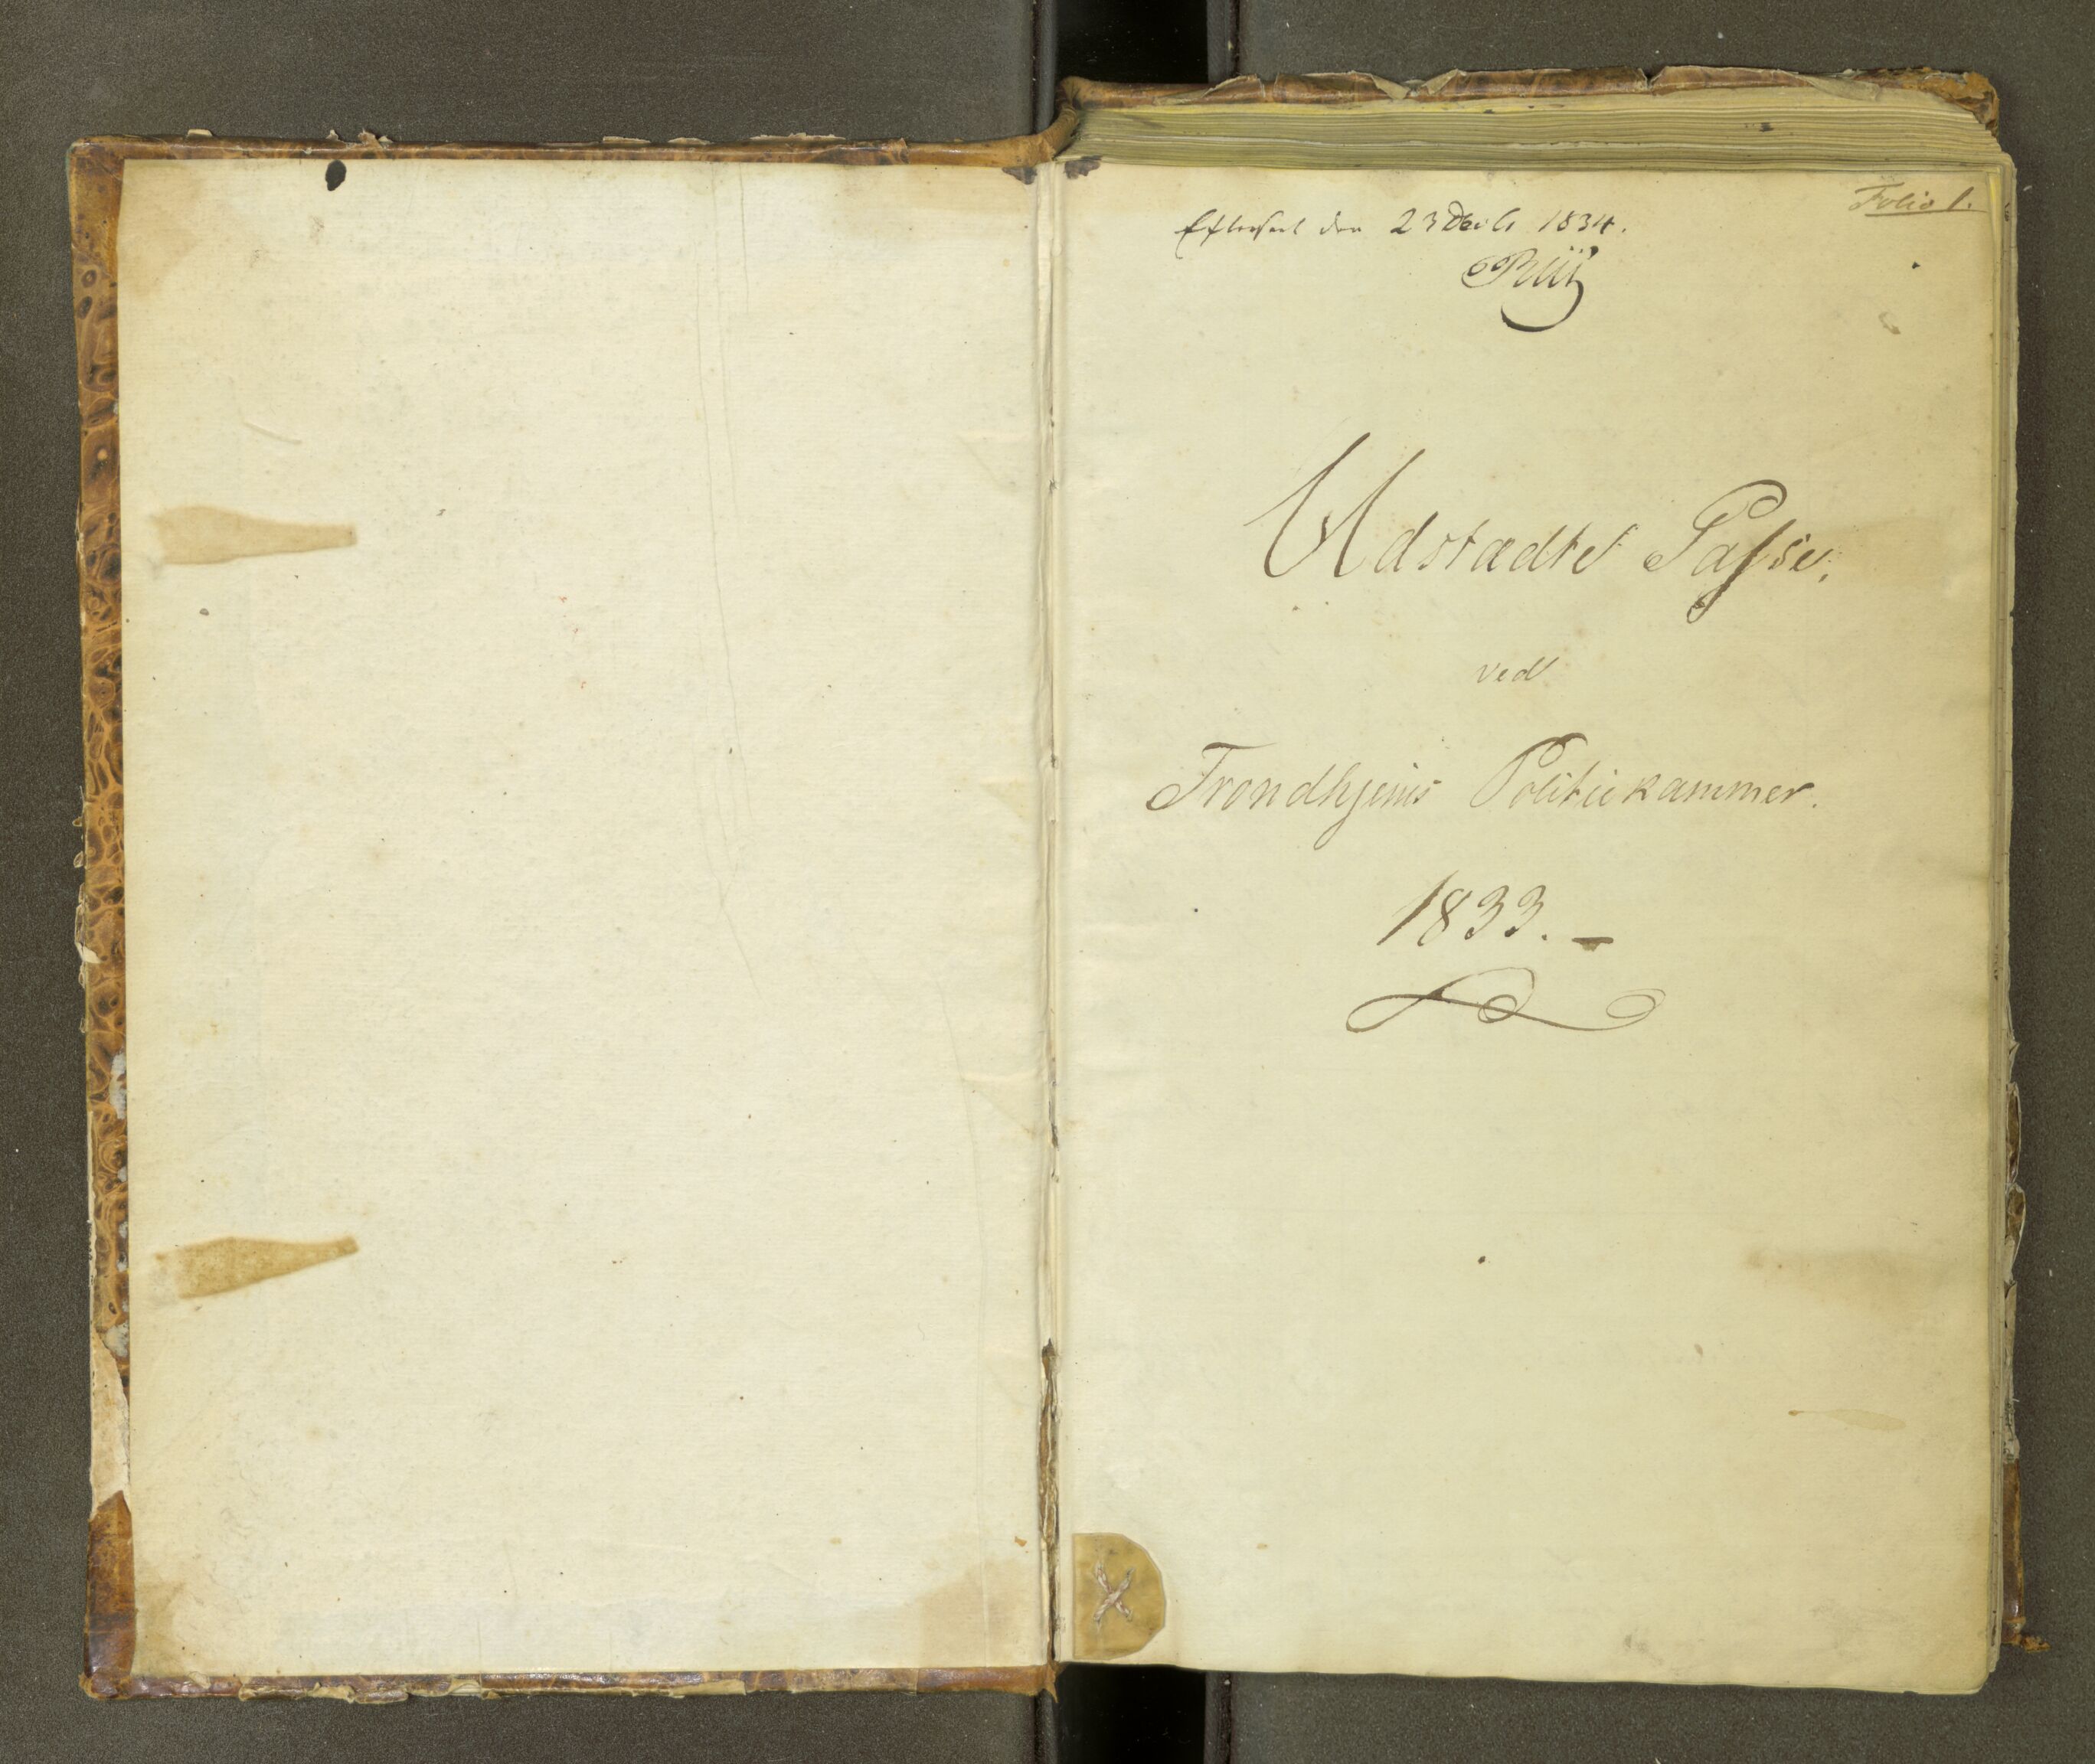 Folio 1.
Efterseet den 23 Decbr 1834.
Udstædte Passe,
ved
Trondhjems Politiekammer.
1833. –